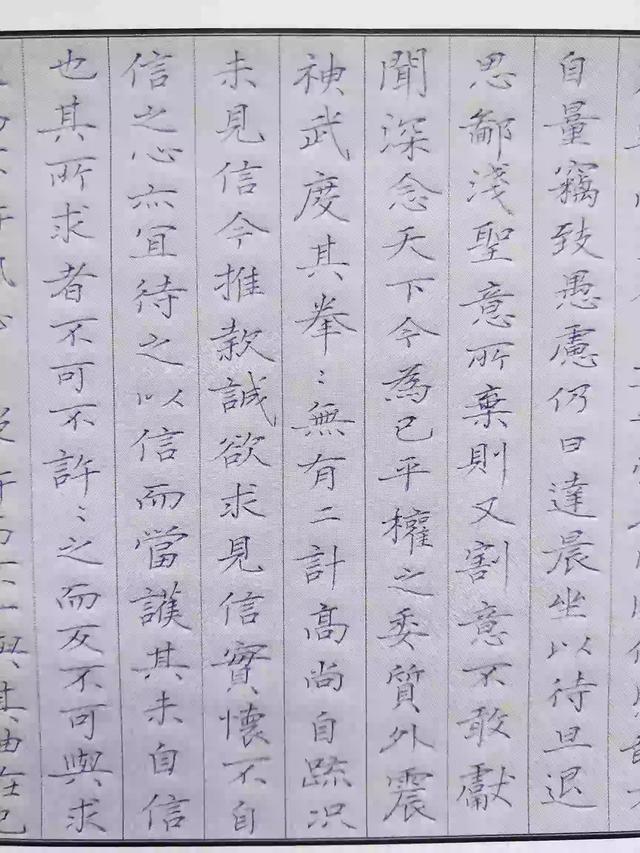 自量竊致愚慮仍日達晨坐以待旦退
思鄙淺聖意所棄則又割意不敢獻
聞深念天下今為已平權之委質外震
神武度其拳〻無有二計高尚自疏况
未見信今推款誠欲求見信實懷不自
信之心亦宜待之以信而當護其未自信
也其所求者不可不許〻之而反不可與求